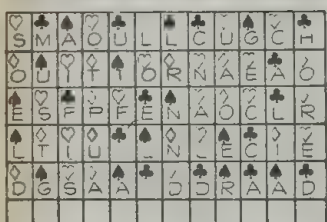 S M A O U L L C U G C H
O U I T T O R N A E A O
E S F P F E N A O C L R
L T I U L N L E C I E
D G S A A J J R A A D